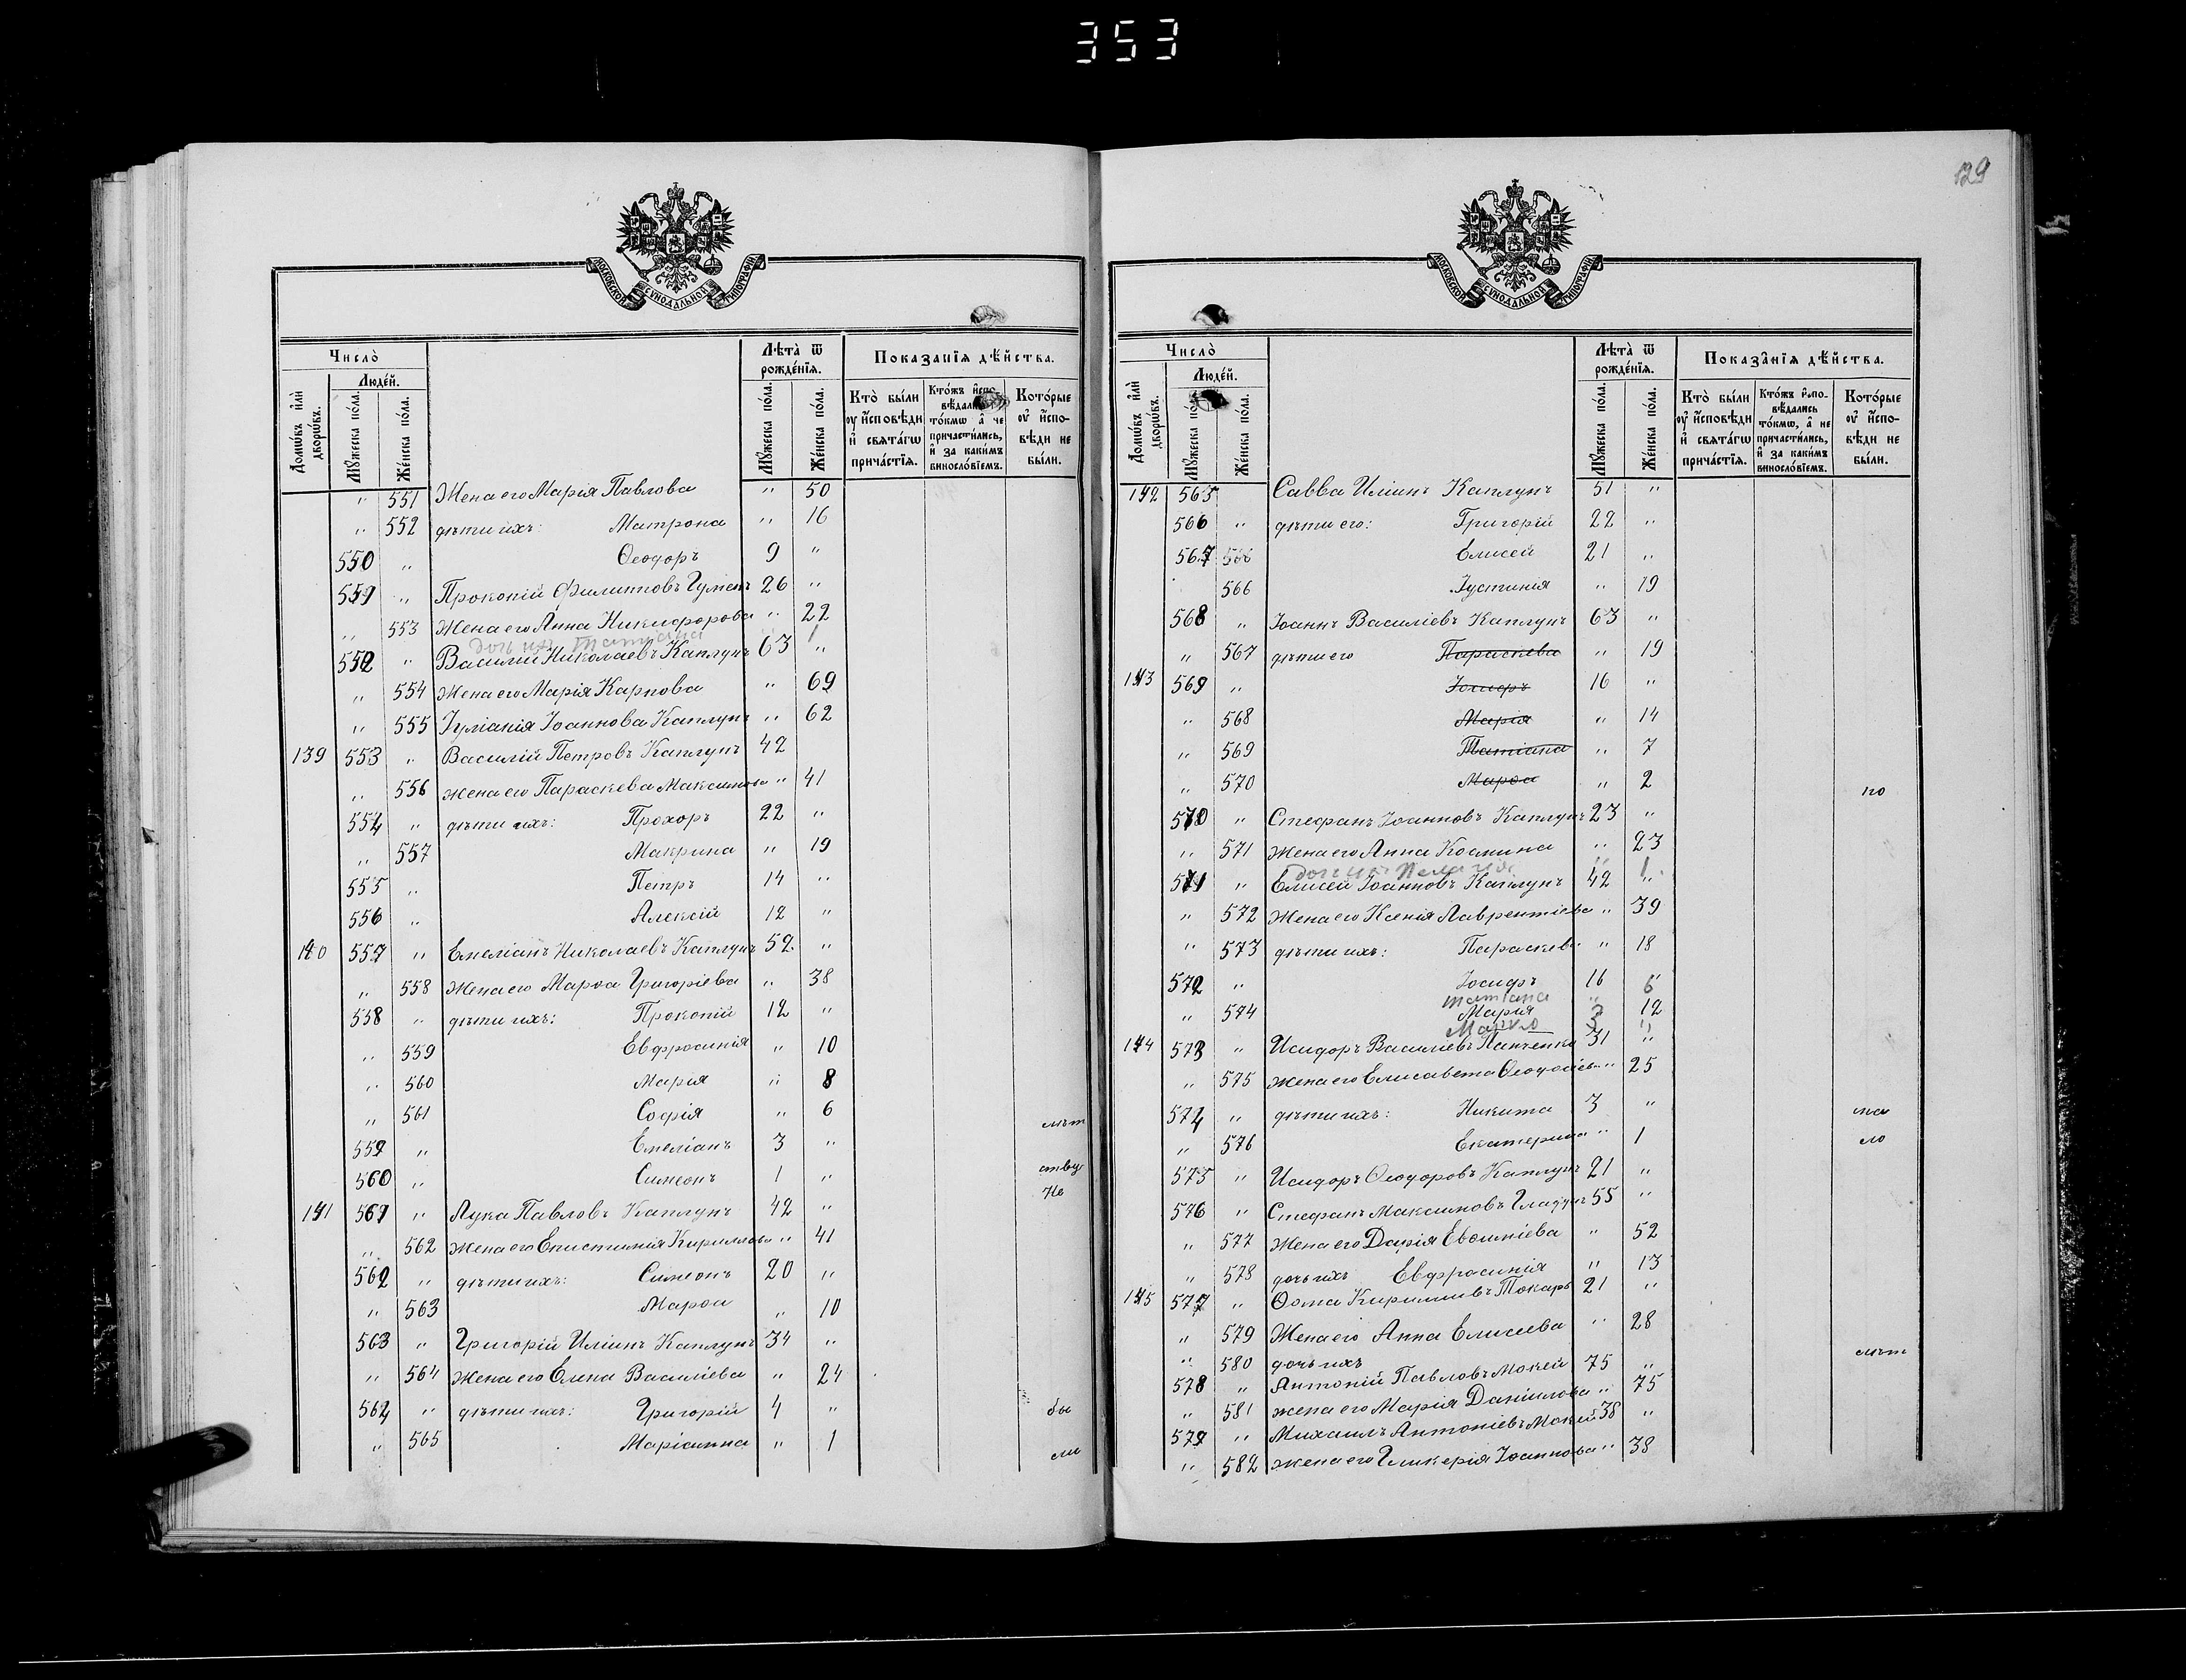 353
129
МОСКОВСКОЙ СѴНОДАЛЬНОЙ ТИПОГРАФІИ
Число̀
Людéй.
Домѡ́въ и҆лѝ дворѡ́въ.
Мꙋ́жеска по́ла.
Же́нска по́ла.
Лѣ́та ѿ рожде́нїѧ.
Мꙋ́жеска по́ла.
Же́нска по́ла.
Показа́нїѧ дѣ́йства.
Кто̀ бы́ли оу҆ и҆сповѣ́ди и҆ свѧта́гѡ прича́стїѧ.
Кто́жъ и҆спо-вѣ́дались то́кмѡ, а҆ не причасти́лись, и҆ за каки́мъ винословїемъ.
Кото́рые оу҆ и҆спо-вѣ́ди не бы́ли.
" 551 Жена его Марія Павлова " 50
" 552 дѣти ихъ: Матрона " 16
550 " Ѳеодоръ 9 "
551 " Прокопій Филипповъ Гумен 26 "
" 553 Жена его Анна Никифорова " 22
дочь ихъ Татіана 1
552 " Василій Николаевъ Каплунъ 63 "
" 554 Жена его Марія Карпова " 69
" 555 Іуліанія Іоаннова Каплунъ " 62
139 553 " Василій Петровъ Каплунъ 42
" 556 жена его Параскева Максимова " 41
554 " дѣти ихъ: Прохоръ 22 "
" 557 Макрина " 19
555 " Петръ 14 "
556 " Алексій 12 "
140 557 " Емеліанъ Николаевъ Каплунъ 52 "
" 558 Жена его Марѳа Григоріева " 38
558 " дѣти ихъ: Прокопій 12 "
" 559 Евфросинія " 10
" 560 Марія " 8
" 561 Софія " 6
559 " Емеліанъ 3 "
560 " Симеонъ 1 "
141 561 " Лука Павловъ Каплунъ 42 "
" 562 Жена его Епистимія Кириллова " 41
562 " дѣти ихъ: Симеонъ 20 "
" 563 Марѳа " 10
563 " Григорій Иліинъ Каплунъ 34 "
" 564 Жена его Елена Василіева " 24
564 " дѣти ихъ: Григорій 4 "
" 565 Маріанна " 1
лѣт
ству
не
бы
ли
Число̀
Людéй.
Домѡ́въ и҆лѝ дворѡ́въ.
Мꙋ́жеска по́ла.
Же́нска по́ла.
Лѣ́та ѿ рожде́нїѧ.
Мꙋ́жеска по́ла.
Же́нска по́ла.
Показа́нїѧ дѣ́йства.
Кто̀ бы́ли оу҆ и҆сповѣ́ди и҆ свѧта́гѡ прича́стїѧ.
Кто́жъ и҆спо-вѣ́дались то́кмѡ, а҆ не причасти́лись, и҆ за каки́мъ винословїемъ.
Кото́рые оу҆ и҆спо-вѣ́ди не бы́ли.
МОСКОВСКОЙ СѴНОДАЛЬНОЙ ТИПОГРАФІИ
142 565 Савва Иліинъ Каплунъ 51 "
566 " дѣти его: Григорій 22 "
567 566 Елисей 21 "
566 Іустинія " 19
568 " Іоаннъ Василіевъ Каплунъ 63 "
" 567 дѣти его Параскева " 19
143 569 " 16 "
" 568 Марія " 14
" 569 Татіана " 7
" 570 Марѳа " 2
по
570 " Стефанъ Іоанновъ Каплунъ 23 "
" 571 Жена его Анна Космина " 23
дочь их Пелагія " 1
571 " Елисей Іоанновъ Каплунъ 42 "
" 572 Жена его Ксенія Лаврентіева " 39
" 573 дѣти ихъ: Параскева " 18
572 " Іосифъ 16 "
Татіана " 6
" 574 Марія " 12
Марко 3 "
144 573 " Исидоръ Василіевъ Панченко 31 "
" 575 жена его Елисавета Ѳеодосіева " 25
574 " дѣти ихъ: Никита 3 "
ма
" 576 Екатерина " 1
ло
575 " Исидоръ Ѳеодоровъ Каплунъ 21 "
576 " Стефанъ Максимовъ Гладунъ 55 "
" 577 Жена его Дарія Евфиміева " 52
" 578 дочь ихъ Евфросинія " 13
145 577 " Ѳома Кирилловъ Токарь 21 "
" 579 Жена его Анна Елисеева " 28
" 580 дочь ихъ
лѣт
578 " Антоній Павловъ Мокей 75 "
" 581 жена его Марія Даніилова " 75
579 " Михаилъ Антоніевъ Мокей 38 "
" 582 жена его Гликерія Іоаннова " 38